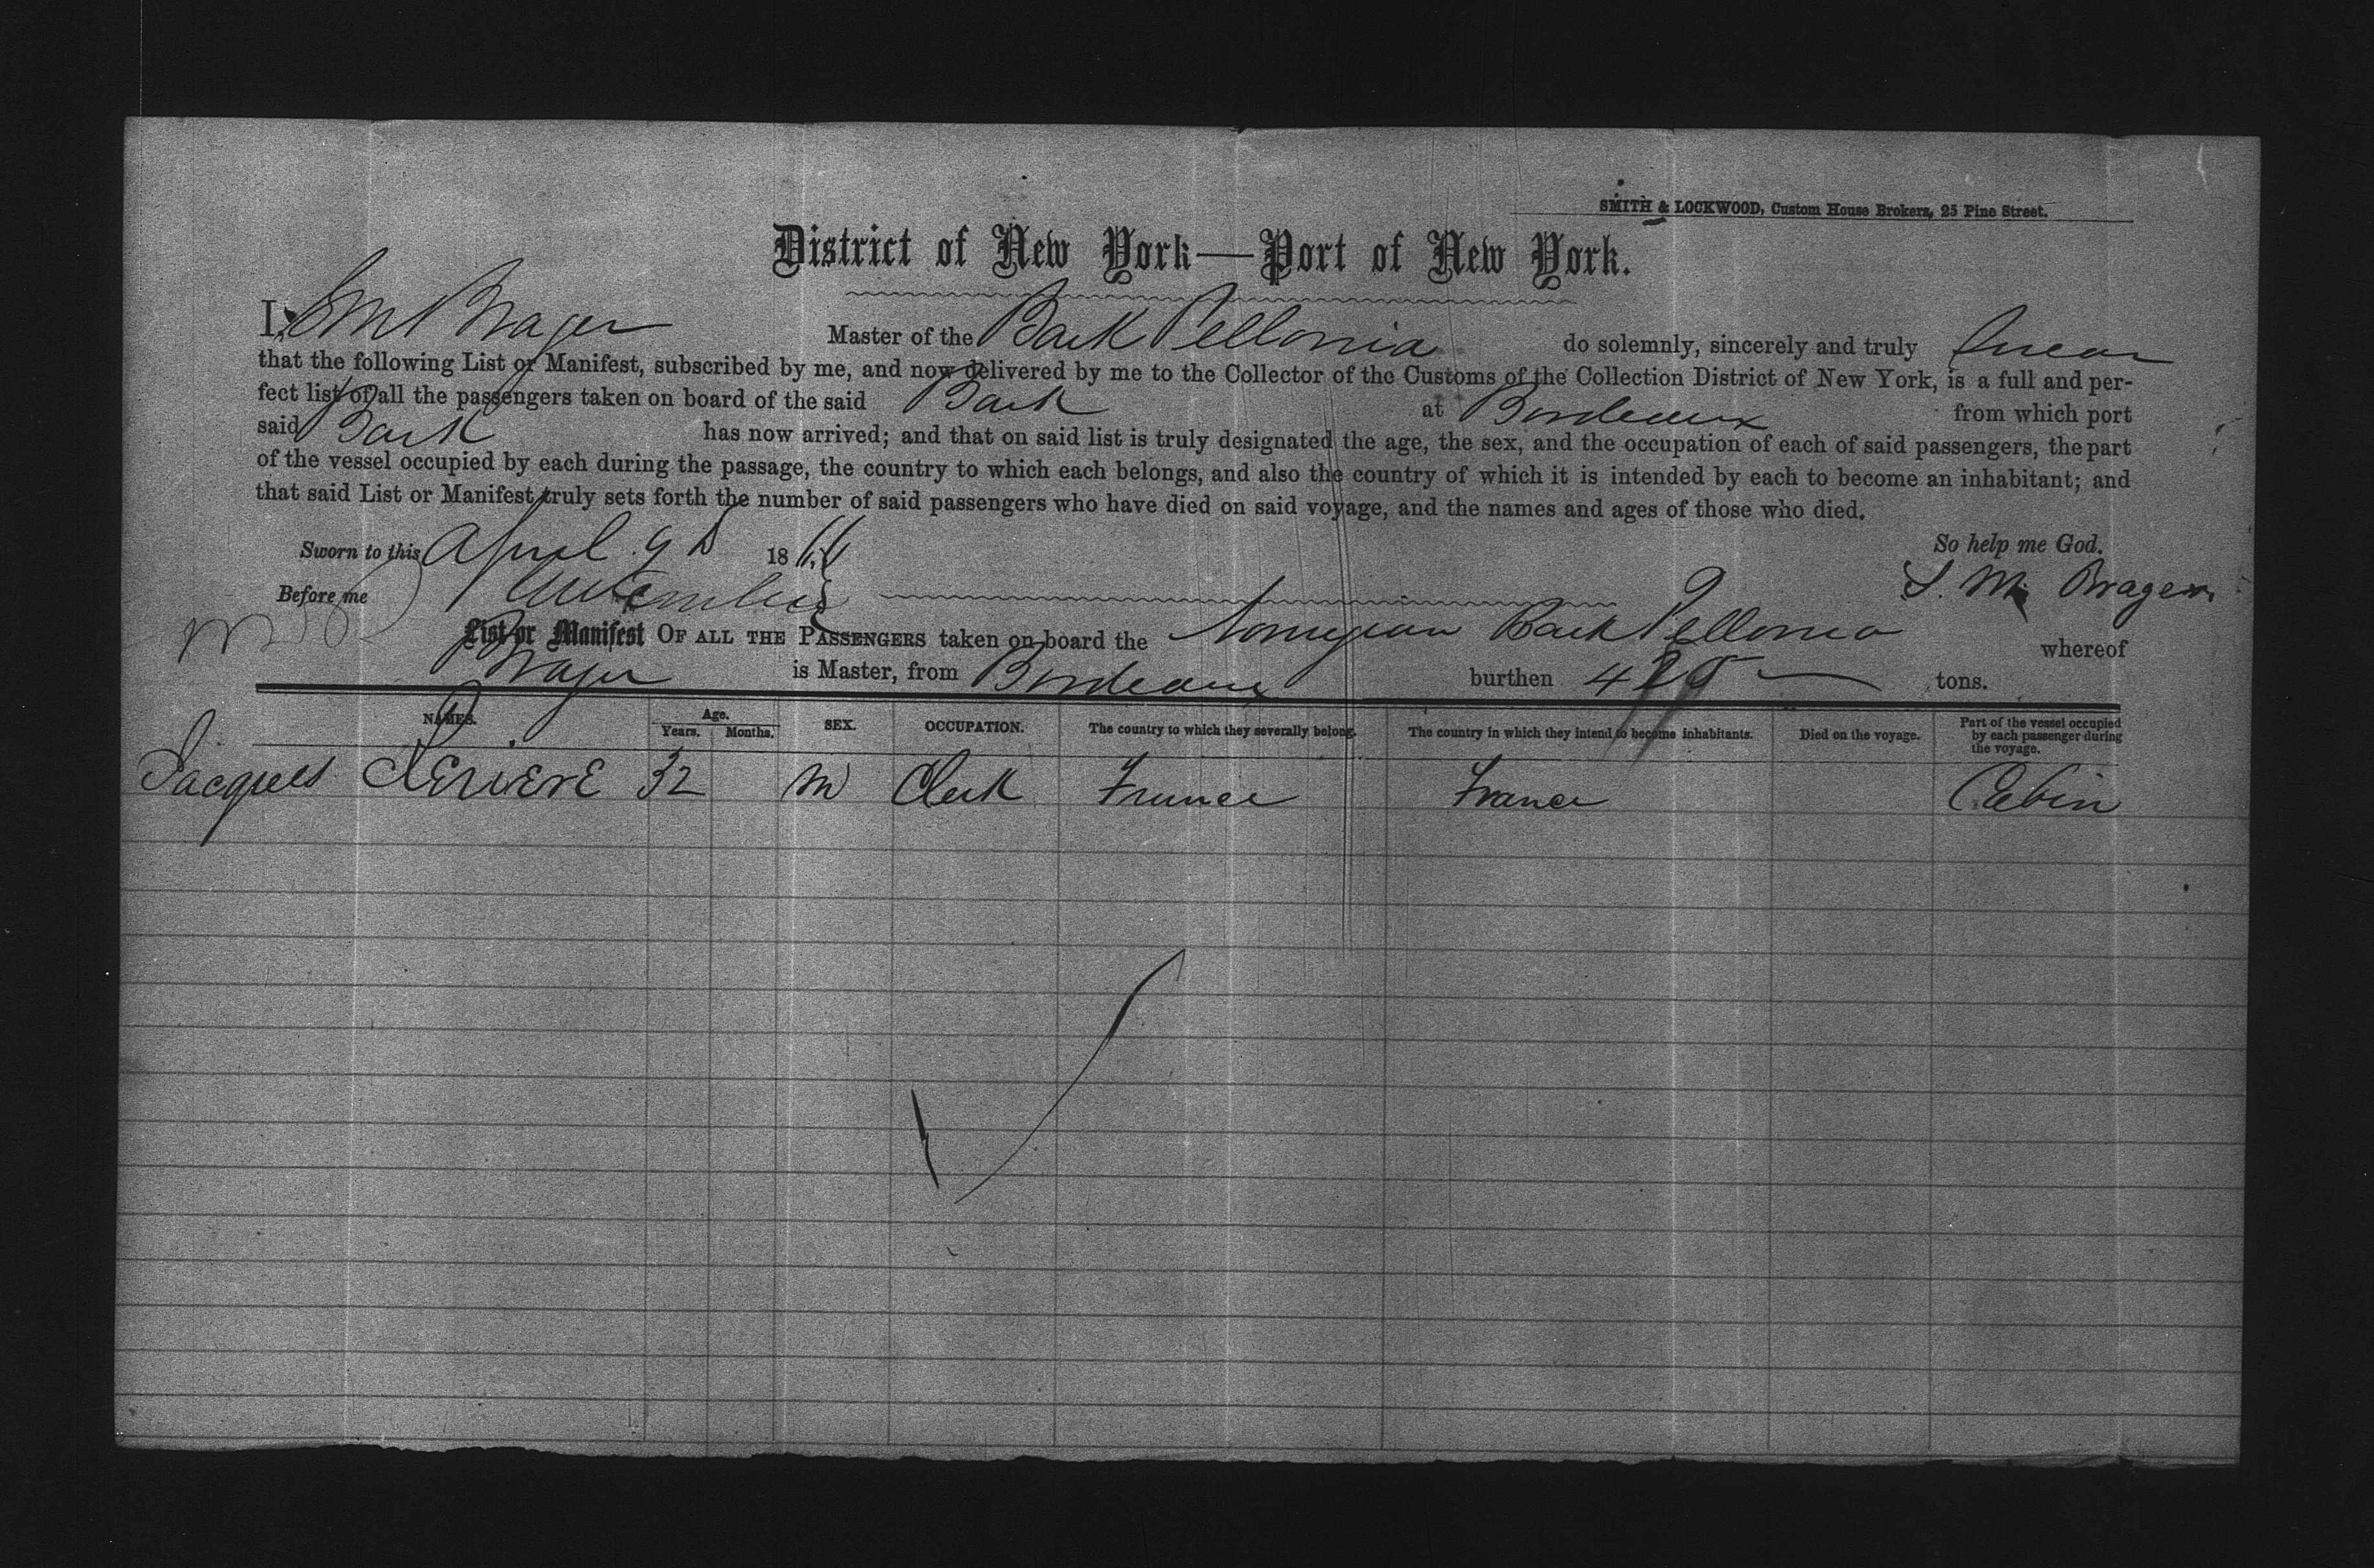 SMITH & LOCKWOOD, Custom House Brokers, 25 Pine Street.
District of New York—Port of New York.
I, Brager Master of the Bark Pellonia do solemnly, sincerely and truly swear
that the following List or Manifest, subscribed by me, and now delivered by me to the Collector of the Customs of the Collection District of New York, is a full and per-
fect list of all the passengers taken on board of the said Bark at Bordeaux from which port
said Bark has now arrived; and that on said list is truly designated the age, the sex, and the occupation of each of said passengers, the part
of the vessel occupied by each during the passage, the country to which each belongs, and also the country of which it is intended by each to become an inhabitant; and
that said List or Manifest truly sets forth the number of said passengers who have died on said voyage, and the names and ages of those who died.
Sworn to this April 9th 1866 So help me God.
Before me S. M. Brager
List or Manifest OF ALL THE PASSENGERS taken on board the Norwegian Bark Pellonia whereof
Brager is Master, from Bordeaux burthen tons.
NAMES. Age. Years. Months. SEX. OCCUPATION. The country to which they severally belong. The country in which they intend to become inhabitants. Died on the voyage. Part of the vessel occupied by each passenger during the voyage.
Jacques 32 M Clerk France France Cabin